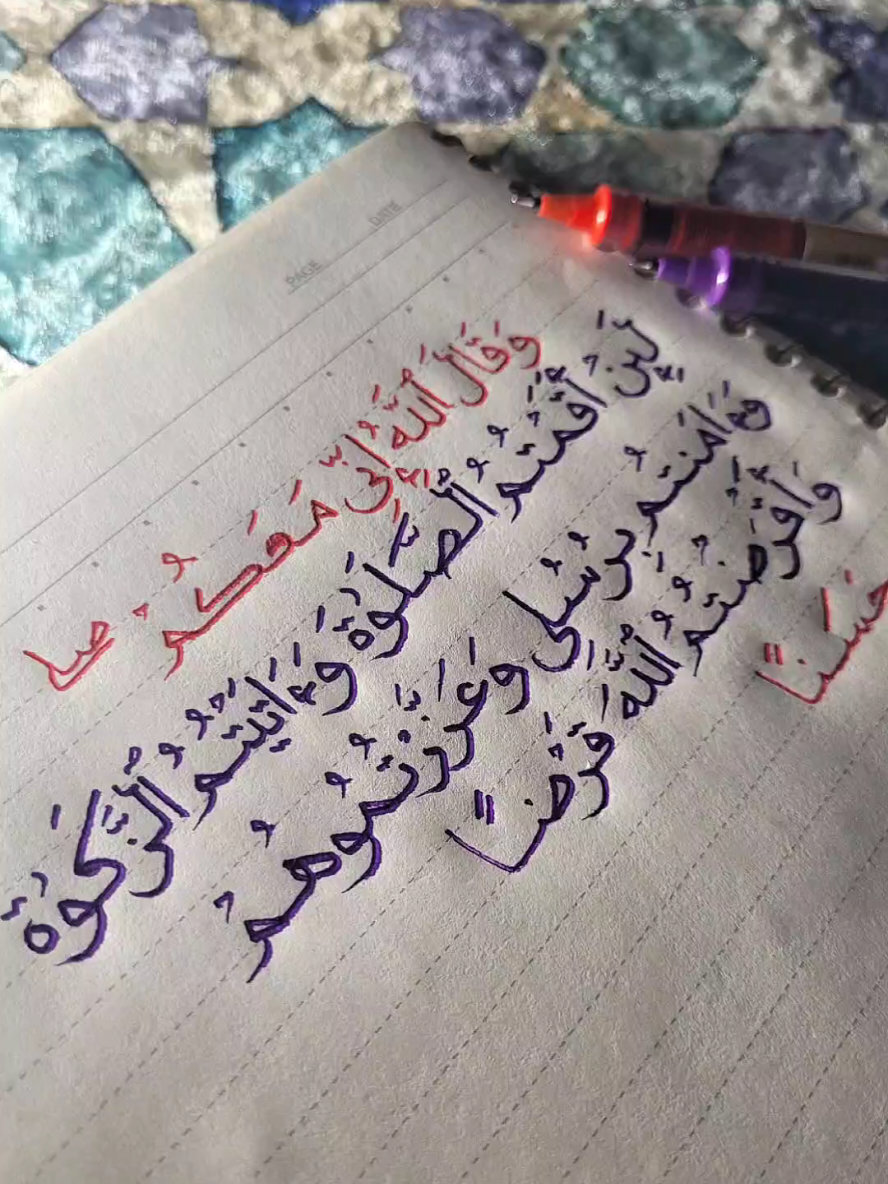 PAGE DATE
وَقَالَ اَللَّهُ إِنِّى مَعَكُمُۥ صلى
لَئِنَ اَقَمْتُمُ اُلصَّلَوٰةَ وَءَاتَيْتُمُ اُلزَّكَوٰةَ
وَءَامَنتُم بِرُسُلِى وَعَزَّرْتُمُوهُمْ
وَأَقْرَضْتُمُ اُللَّهَ قَرْضاً
حَسَناً